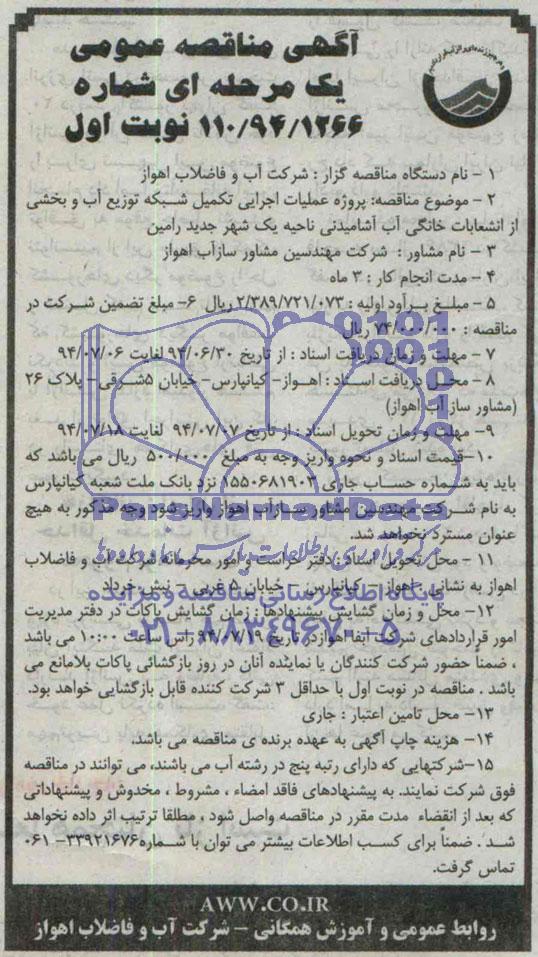 آگهی مناقصه عمومی
یک مرحله ای شماره
۱۱۰/۹۴/۱۲۶۶ نوبت اول
۱- نام دستگاه مناقصه گزار : شرکت آب و فاضلاب اهواز
۲- موضوع مناقصه: پروژه عملیات اجرایی تکمیل شبکه توزیع آب و بخشی
از انشعابات خانگی آب آشامیدنی ناحیه یک شهر جدید رامین
۳- نام مشاور : شرکت مهندسین مشاور سازآب اهواز
۴- مدت انجام کار : ۳ ماه
۵- مبلغ برآورد اولیه : ۲/۳۸۹/۷۲۱/۰۷۳ ریال ۶- مبلغ تضمین شرکت در
مناقصه : ۷۴/۰۰۰/۰۰۰ ریال
۷- مهلت و زمان دریافت اسناد : از تاریخ ۹۴/۰۶/۳۰ لغایت ۹۴/۰۷/۰۶
۸- محل دریافت اسناد : اهواز- کیانپارس- خیابان ۵شرقی- پلاک ۲۶
(مشاور ساز آب اهواز)
۹- مهلت و زمان تحویل اسناد : از تاریخ ۹۴/۰۷/۰۷ لغایت ۹۴/۰۷/۱۸
۱۰-قیمت اسناد و نحوه واریز وجه به مبلغ ۵۰۰/۰۰۰ ریال می باشد که
باید به شماره حساب جاری ۱۵۵۰۶۸۱۹۰۳ نزد بانک ملت شعبه کیانپارس
به نام شرکت مهندسین مشاور سازآب اهواز واریز شود وجه مذکور به هیچ
عنوان مسترد نخواهد شد.
ParsNamadData
مرکز فرآوری اطلاعات پارس نماد داده ها
۱۱- محل تحویل اسناد: دفتر حراست و امور محرمانه شرکت آب و فاضلاب
اهواز به نشانی - اهواز - کیانپارس - خیابان ۵ غربی - نبش خرداد
پایگاه اطلاع رسانی مناقصه و مزایده
۱۲- محل و زمان گشایش پیشنهادها: زمان گشایش پاکات در دفتر مدیریت
امور قراردادهای شرکت آبفا اهواز در تاریخ ۹۴/۰۷/۱۹ راس ساعت ۱۰:۰۰ می باشد
۰۲۱-۸۸۳۴۹۶۷۰-۵
، ضمناً حضور شرکت کنندگان یا نماینده آنان در روز بازگشائی پاکات بلامانع می
باشد . مناقصه در نوبت اول با حداقل ۳ شرکت کننده قابل بازگشایی خواهد بود.
۱۳- محل تامین اعتبار : جاری
۱۴- هزینه چاپ آگهی به عهده برنده ی مناقصه می باشد.
۱۵-شرکتهایی که دارای رتبه پنج در رشته آب می باشند، می توانند در مناقصه
فوق شرکت نمایند. به پیشنهادهای فاقد امضاء ، مشروط ، مخدوش و پیشنهاداتی
که بعد از انقضاء مدت مقرر در مناقصه واصل شود ، مطلقا ترتیب اثر داده نخواهد
شد . ضمناً برای کسب اطلاعات بیشتر می توان با شماره۳۳۹۲۱۶۷۶- ۰۶۱
تماس گرفت.
AWW.CO.IR
روابط عمومی و آموزش همگانی - شرکت آب و فاضلاب اهواز